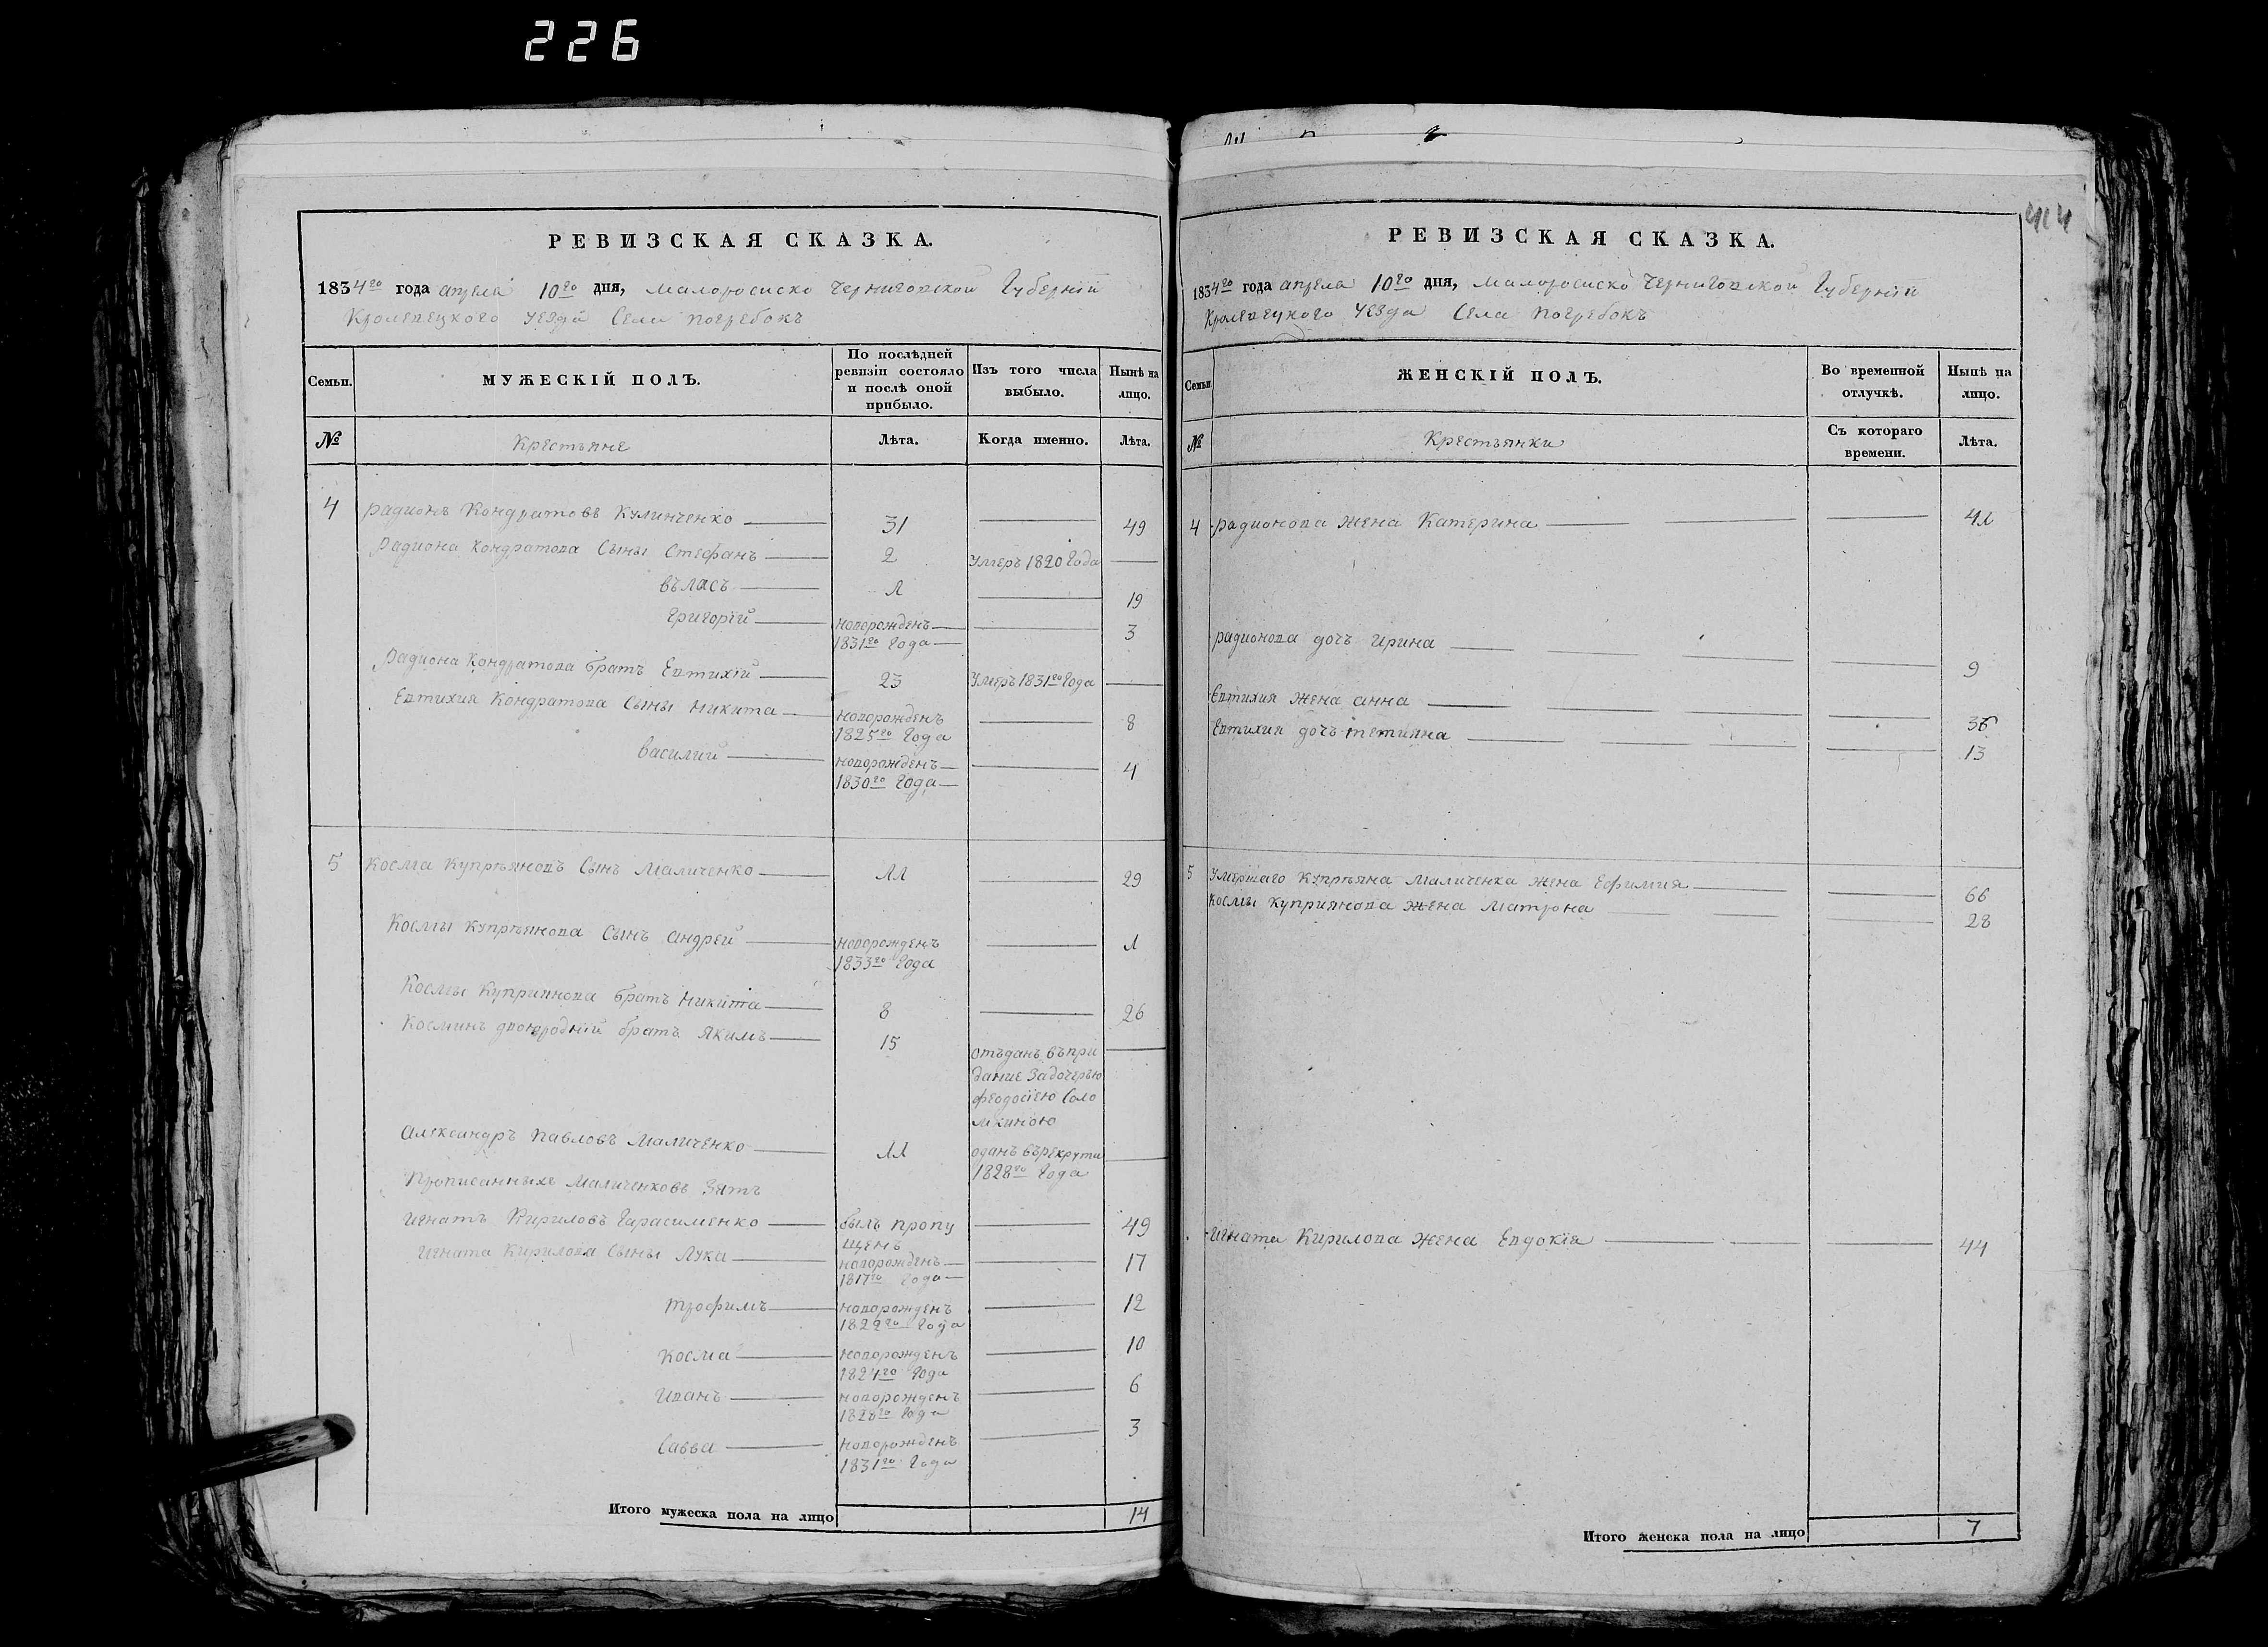 226
РЕВИЗСКАЯ СКАЗКА.
1834го года апреля 10го дня, Малоросиско Черниговской Губерніи
Кролевецкого уезда Села Погребокъ
Семьи.
МУЖЕСКІЙ ПОЛЪ.
По послѣдней ревизіи состояло и послѣ оной прибыло.
Изъ того числа выбыло.
Нынѣ на лицо.
№
Крестьяне
Лѣта.
Когда именно.
Лѣта.
4 Радионъ Кондратовъ Кулинченко 31 49
Радиона Кондратова Сыны Стефанъ 2 умеръ 1820 Года
Въласъ 1 19
Григорій новорожденъ 1831го Года 3
Радиона Кондратова братъ Евтихій 23 умеръ 1831го Года
Евтихия Кондратова Сыны Никита новорожденъ 1825го Года 8
Василий новорожденъ 1830го Года 4
5 Косма Купрѣяновъ Сынъ Маличенко 11 29
Космы Купрѣянова Сынъ Андрей новорожденъ 1833го Года 1
Космы Куприянова братъ Никита 8 26
Косминъ двоюродній братъ Якимъ 15 отъданъ въпри
дание Задочерью
Феодосіею Соло
мкиною
Александръ Павловъ Маличенко 11 оданъ върекрути
1828го Года
Прописанныхъ Маличенковъ Зять
Игнатъ Кириловъ Гарасименко былъ пропу
щенъ 49
Игната Кирилова Сыны Лука новорожденъ 1817го Года 17
Трофимъ новорожденъ 1822го Года 12
Косма новорожденъ 1824го Года 10
Иванъ новорожденъ 1828го Года 6
Савва новорожденъ 1831го Года 3
Итого мужеска пола на лицо 14
414
РЕВИЗСКАЯ СКАЗКА.
1834го года апреля 10го дня, Малоросиско Черниговской Губерніи
Кролевецкого уезда Села Погребокъ
Семьи
ЖЕНСКІЙ ПОЛЪ.
Во временной отлучкѣ.
Нынѣ на лицо.
№
Крестьянки
Съ котораго времени.
Лѣта.
4 Радионова жена Катерина 41
Радионова дочъ Ирина 9
Евтихия жена Анна 36
Евтихия дочъ Тетияна 13
5 Умершаго Купрѣяна Маличенка жена Ефимия 66
Космы Куприянова жена Матрона 28
Игната Кирилова жена Евдокія 44
Итого женска пола на лицо 7